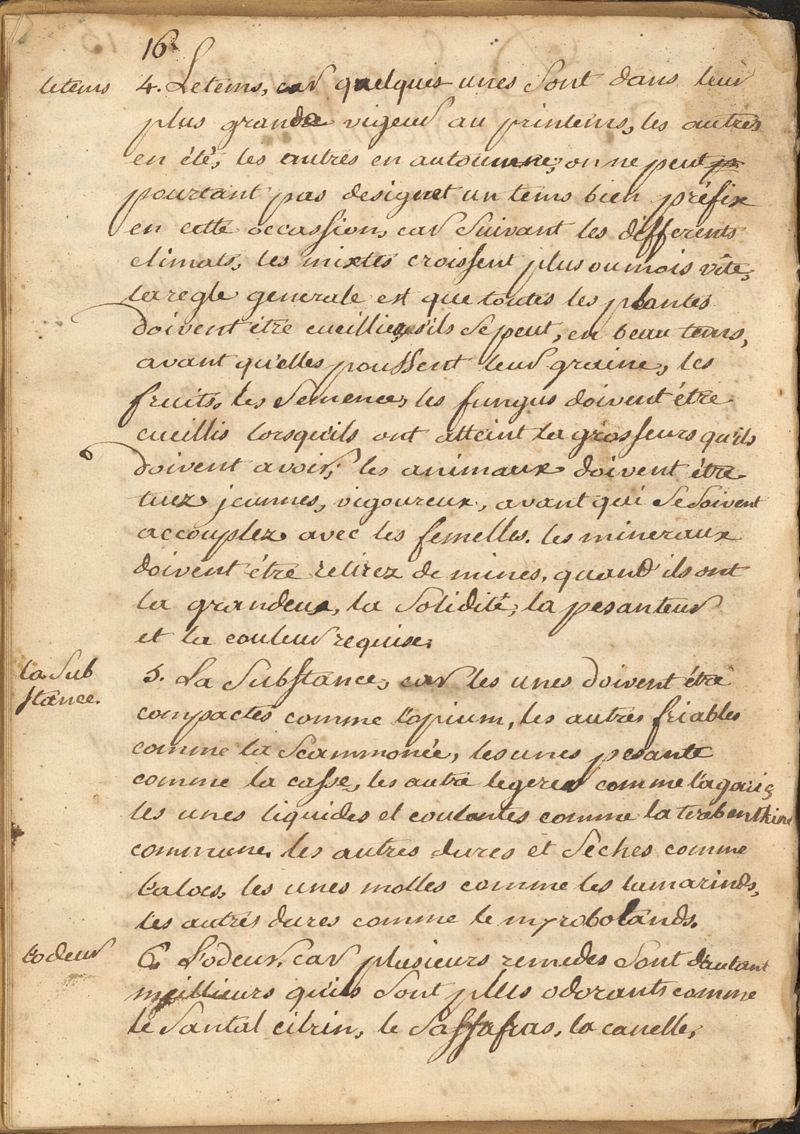 16
le tems
4. Le tems, car quelques unes sont dans leur
plus grande vigeur au printems, les autres
en été, les autres en autoumne, on ne peut
pourtant pas designet un tems bien préfix
en cette occassion, car suivant les differents
climats, les mixtes croissent plus ou mois vîte,
la regle generale est que toutes les plantes
doivent être cueillies, s'ils se peut, en beau tems,
avant qu'elles poussent leur graine, les
fruits, les semences, les fungus doivent être
cueillis lorsqu'ils ont atteint la grosseurs qu'ils
doivent avoir, les animaux doivent être
tuez jeunnes, vigoureux, avant qui se soivent
accouplez avec les femelles. les mineraux
doivent être retirez de mines, quand ils ont
la grandeur, la solidité, la pesanteur
et la couleur requise.
la Sub
stance.
5. La Substance, car les unes doivent être
compactes comme l'opium, les autres friables
comme la scammonée, les unes pesante
comme la casse, les autre legeres comme l'agaric
les unes liquides et coulantes comme la terebenthine
commune. les autres dures et sêches comme
l'aloes, les unes molles comme les tamarinds,
les autres dures comme le myrobolands.
l'odeur
6. L'odeur, car plusieurs remedes sont d'autant
meilleurs qu'ils sont plus odorants comme
le Santal citrin, le sassafras, la canelle,